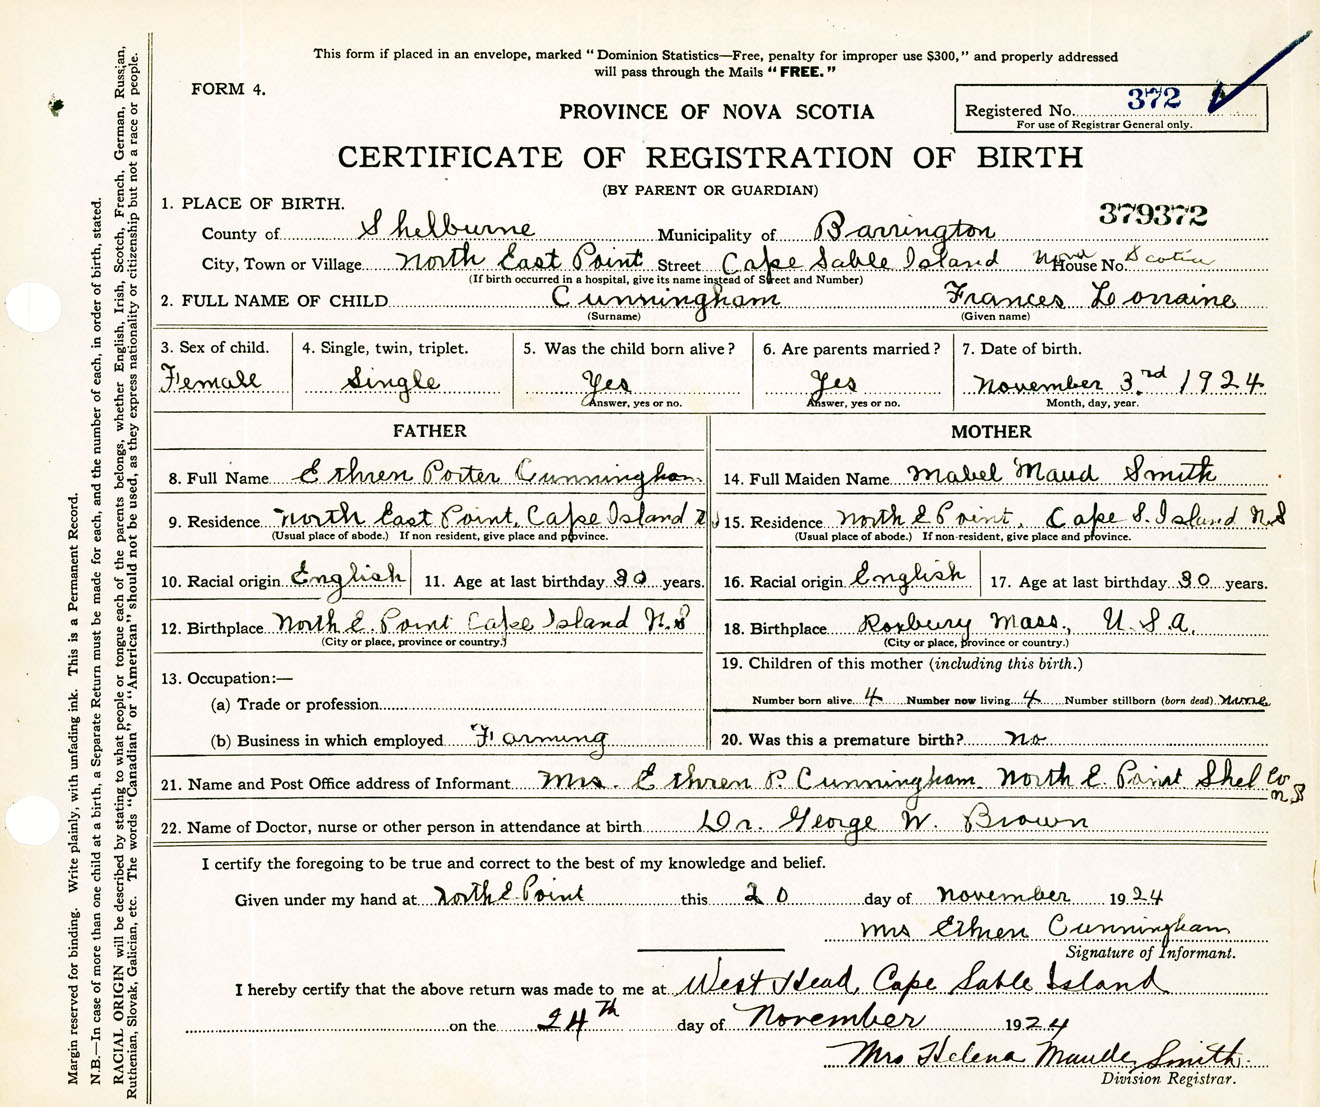 This form if placed in an envelope, marked "Dominion Statistics—Free, penalty for improper use $300," and properly addressed
will pass through the Mails "FREE."
FORM 4.
PROVINCE OF NOVA SCOTIA
Registered No. 372
For use of Registrar General only.
CERTIFICATE OF REGISTRATION OF BIRTH
(BY PARENT OR GUARDIAN)
1. PLACE OF BIRTH.
379372
County of Shelburne Municipality of Barrington
City, Town or Village North East Point Street Cape Sable Island House No. Nova Scotia
(If birth occurred in a hospital, give its name instead of Street and Number)
2. FULL NAME OF CHILD Cunningham Frances Lorraine
(Surname) (Given name)
3. Sex of child. 4. Single, twin, triplet. 5. Was the child born alive? 6. Are parents married? 7. Date of birth.
Female Single Yes Yes November 3rd 1924
Answer, yes or no. Answer, yes or no. Month, day, year.
FATHER MOTHER
8. Full Name Ethren Porter Cunningham 14. Full Maiden Name Mabel Maud Smith
9. Residence North East Point, Cape Island 15. Residence North E Point, Cape S. Island N.S
(Usual place of abode.) If non resident, give place and province. (Usual place of abode.) If non-resident, give place and province.
10. Racial origin English 11. Age at last birthday 30 years. 16. Racial origin English 17. Age at last birthday 30 years.
12. Birthplace North E. Point Cape Island N.S 18. Birthplace Roxbury Mass., U.S.A.
(City or place, province or country.) (City or place, province or country.)
13. Occupation:— 19. Children of this mother (including this birth.)
(a) Trade or profession Number born alive 4 Number now living 4 Number stillborn (born dead) none
(b) Business in which employed Farming 20. Was this a premature birth? No
21. Name and Post Office address of Informant Mrs. Ethren P. Cunningham North E Point Shel Co N.S
22. Name of Doctor, nurse or other person in attendance at birth Dr. George W. Brown
I certify the foregoing to be true and correct to the best of my knowledge and belief.
Given under my hand at North E. Point this 20 day of November 1924
Mrs Ethren Cunningham
Signature of Informant.
I hereby certify that the above return was made to me at West Head, Cape Sable Island
on the 24th day of November 1924
Mrs Helena Maude Smith.
Division Registrar.
Margin reserved for binding. Write plainly, with unfading ink. This is a Permanent Record.
N.B.—In case of more than one child at a birth, a Separate Return must be made for each, and the number of each, in order of birth, stated.
RACIAL ORIGIN will be described by stating to what people or tongue each of the parents belongs, whether English, Irish, Scotch, French, German, Russian,
Ruthenian, Slovak, Galician, etc. The words "Canadian" or "American" should not be used, as they express nationality or citizenship but not a race or people.